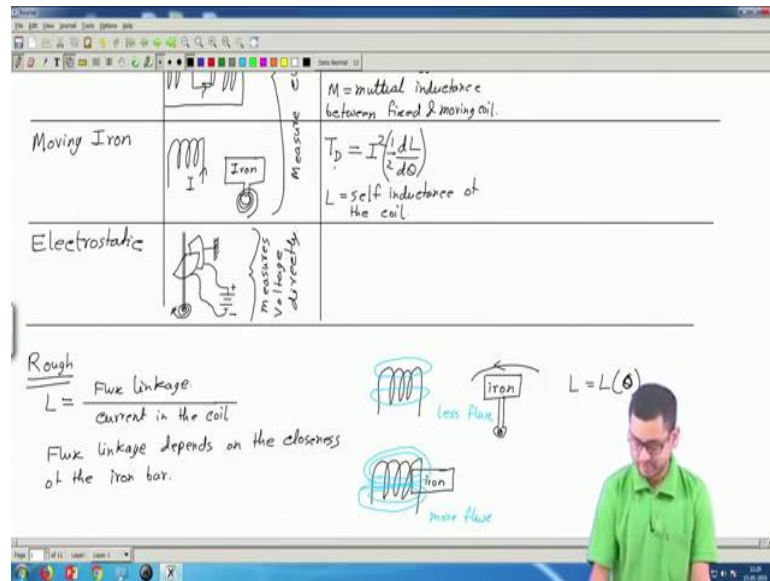 File Edit View Journal Tools Options Help
Sans Normal 12
Measure
M = muttual inductance
between fixed & moving coil.
Moving Iron
I
Iron
T_D = I²(1/2 dL/dθ)
L = self inductance of
the coil.
Electrostatic
+
-
measures
voltage
directly
Rough
L = Flux linkage / current in the coil
Flux linkage depends on the closeness
of the iron bar.
less flux
iron
L = L(θ)
iron
more fluxe
Page 1 of 11 Layer: Layer 1